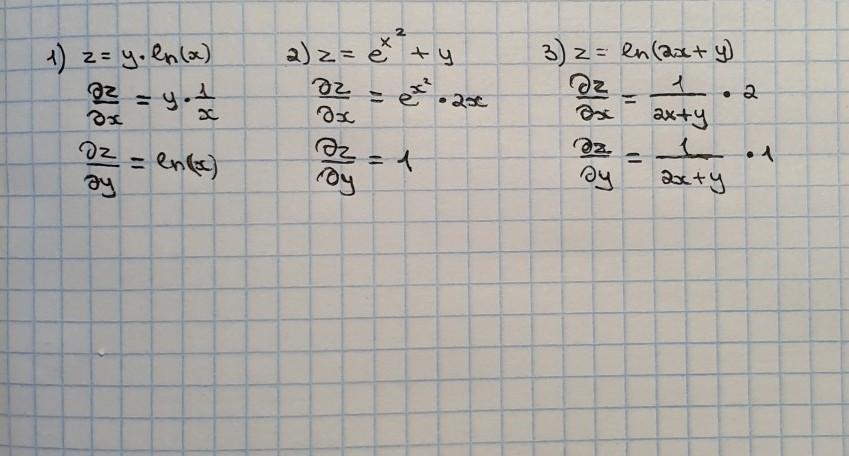 1) z = y · ln(x)
∂z/∂x = y · 1/x
∂z/∂y = ln(x)
2) z = e^x^2 + y
∂z/∂x = e^x^2 · 2x
∂z/∂y = 1
3) z = ln(2x+y)
∂z/∂x = 1/(2x+y) · 2
∂z/∂y = 1/(2x+y) · 1